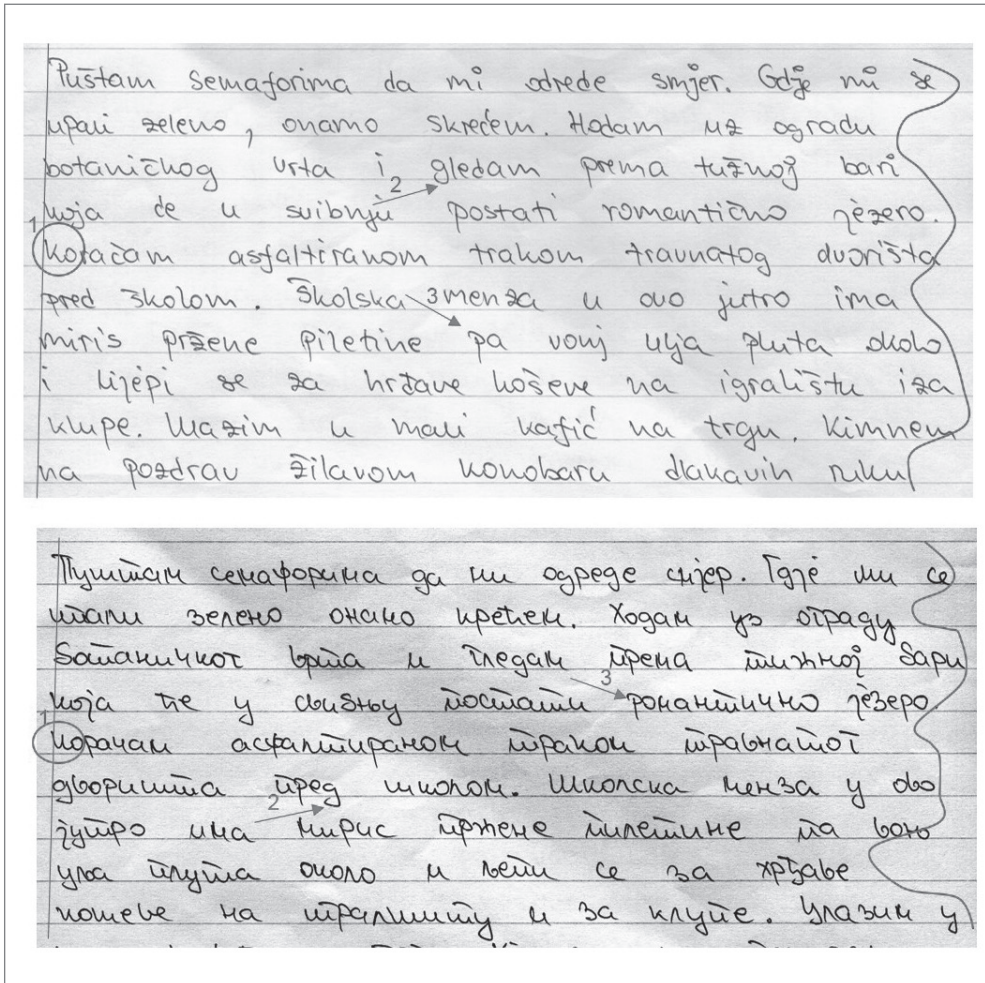 Puštam semaforima da mi odrede smjer. Gdje mi se
upali zeleno, onamo skrećem. Hodam uz ogradu
botaničkog vrta i gledam prema tužnoj bari
2
koja će u svibnju postati romantično jezero.
1
Koračam asfaltiranom trakom travnatog dvorišta
pred školom. Školska 3 menza u ovo jutro ima
miris pržene piletine pa vonj ulja pluta okolo
i lijepi se za hrđave koševe na igralištu iza
klupe. Ulazim u mali kafić na trgu. Kimnem
na pozdrav žilavom konobaru dlakavih ruku
Пуштам семафорима да ми одреде смјер. Гдје ми се
упали зелено онамо крећем. Ходам уз ограду
Ботаничког врта и гледам према тужној бари
3
која ће у свибњу постати романтично језеро
1
Корачам асфалтираном траком травнатог
дворишта пред школом. Школска менза у ово
2
јутро има мирис пржене пилетине па воњ
уља плута около и љепи се за хрђаве
кошеве на игралишту и за клупе. Улазим у